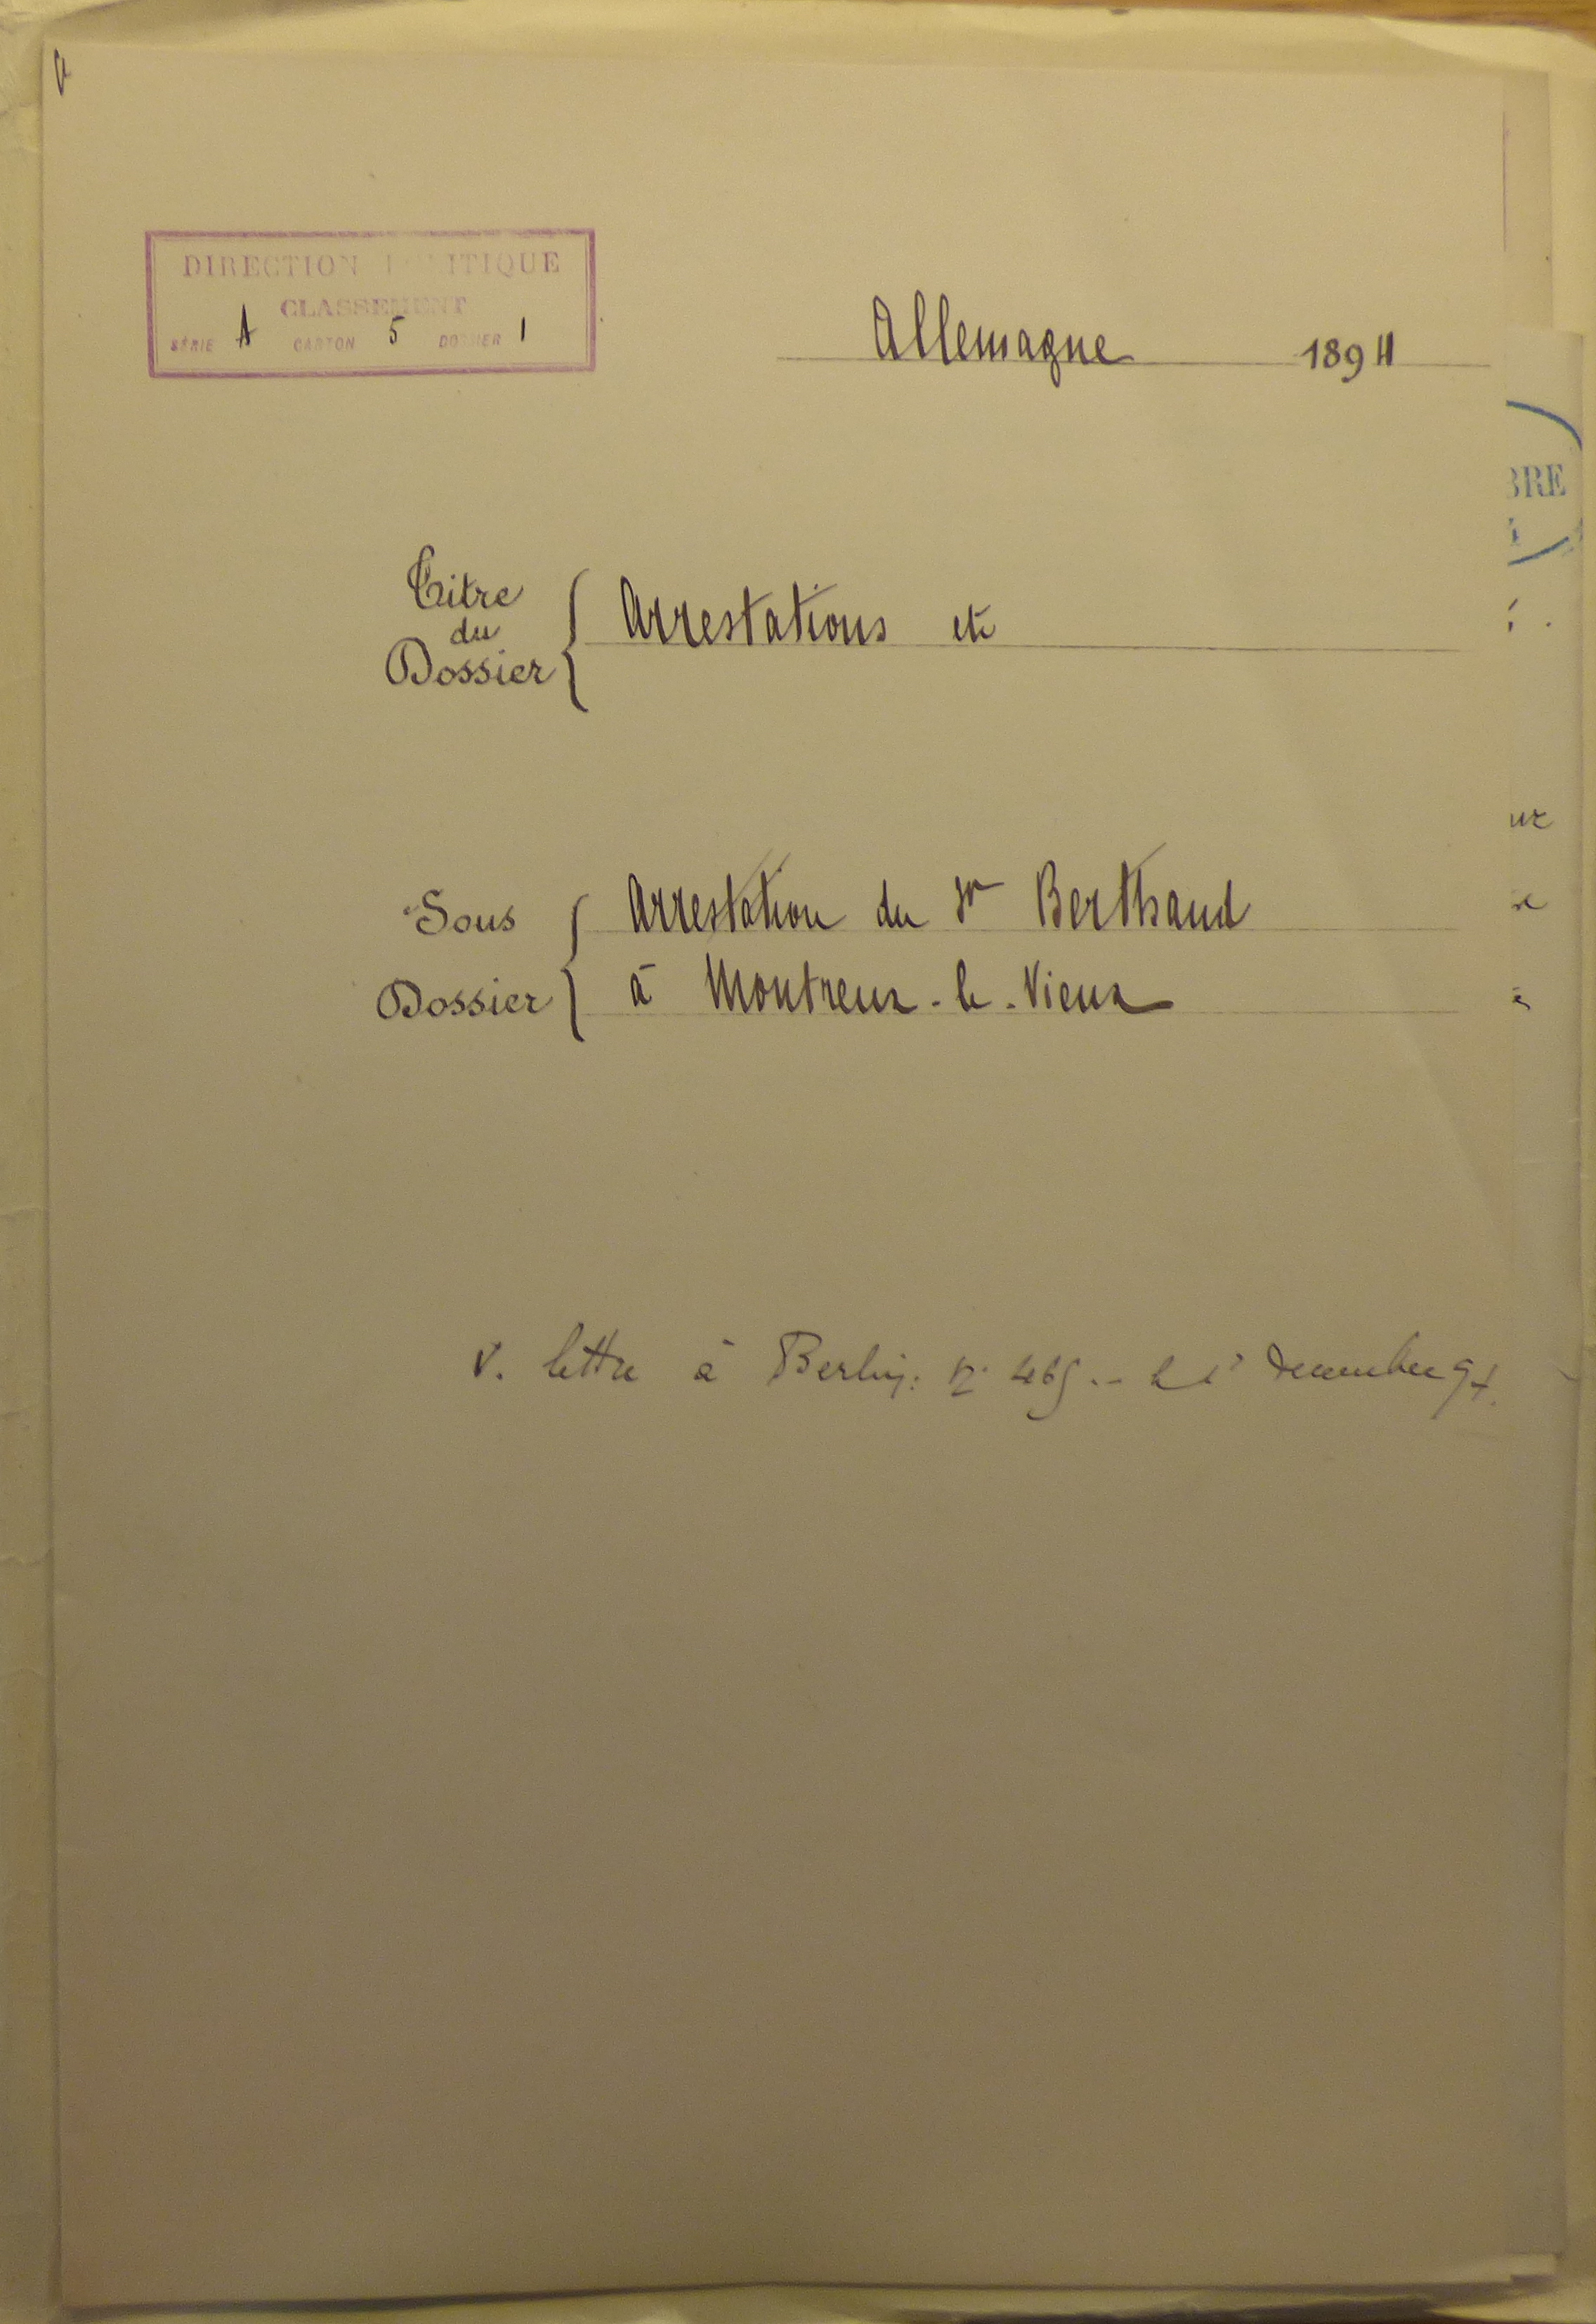 DIRECTION POLITIQUE
CLASSEMENT
SÉRIE A CARTON 5 DOSSIER 1
Allemagne 1894
Titre
du
Dossier
Arrestations etc
Sous
Dossier
Arrestation du Sr Berthaud
à Montreux-le-Vieux
V. lettre à Berlin: n° 465 décembre 94.
BRE